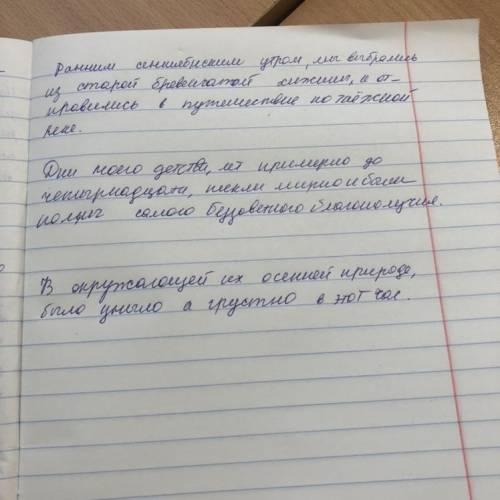 Ранним сентябрьским утром, мы выбрались
из старой бревенчатой хижины, и от-
правились в путешествие по таёжной
реке.
Дни моего детства, лет примерно до
четырнадцати, текли мирно и были
полны самого безоблачного благополучия.
В окружающей их осенней природе,
было уныло и грустно в этот час.